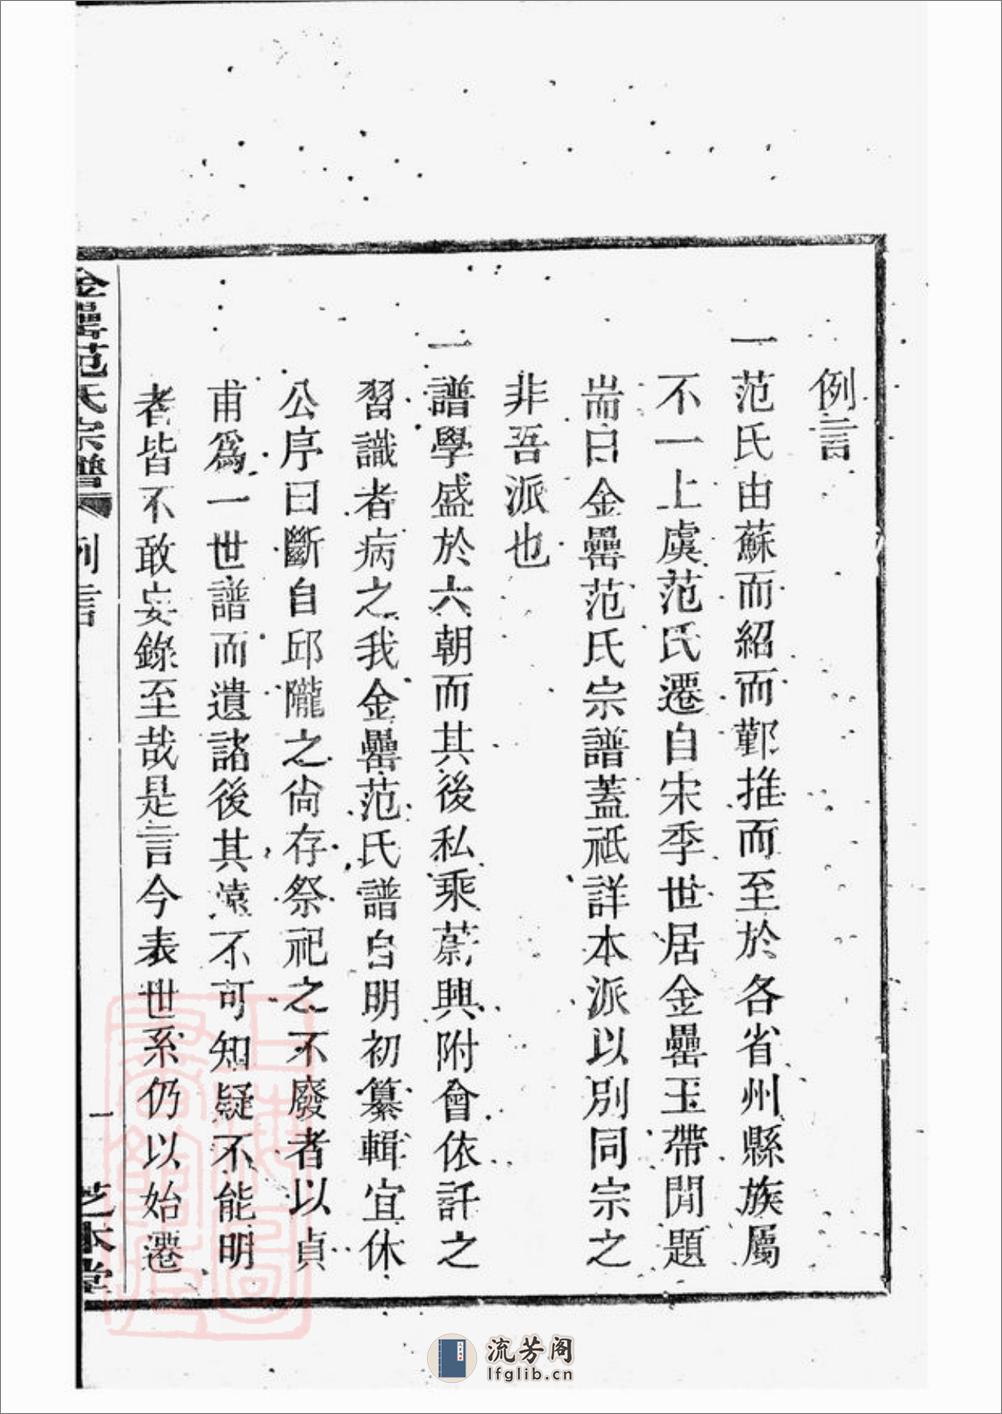 例言
一范氏由蘇而紹而鄞推而至於各省州縣族屬
不一上虞范氏遷自宋季世居金罍玉帶閒題
耑曰金罍范氏宗譜蓋祗詳本派以別同宗之
非吾派也
一譜學盛於六朝而其後私乘蔚興附會依託之
習識者病之我金罍范氏譜自明初纂輯宜休
公序曰斷自邱隴之尙存祭祀之不廢者以貞
甫爲一世譜而遺諸後其遠不可知疑不能明
者皆不敢妄錄至哉是言今表世系仍以始遷
金罍范氏宗譜 例言 一 芝本堂
流芳阁
lfglib.cn